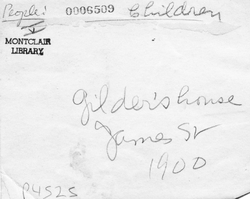 People: 0006509 Children
V
MONTCLAIR
LIBRARY
Gilder's house
James St
1900
P4525